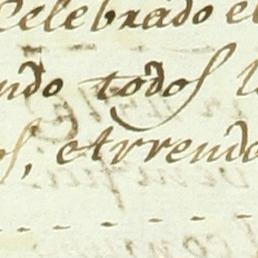 Celebrado el
ndo todos l
os, etrrendo